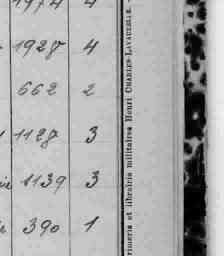 1974 4
1928 4
662 2
1128 3
1139 3
390 1
rimerie et librairie militaires Henri CHARLES-LAVAUZELLE.